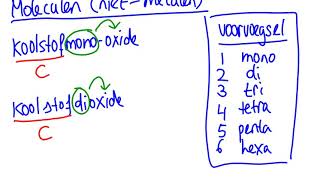 Moleculen (niet-metalen)
koolstofmono-oxide
C
koolstofdioxide
C
voorvoegsel
1 mono
2 di
3 tri
4 tetra
5 penta
6 hexa